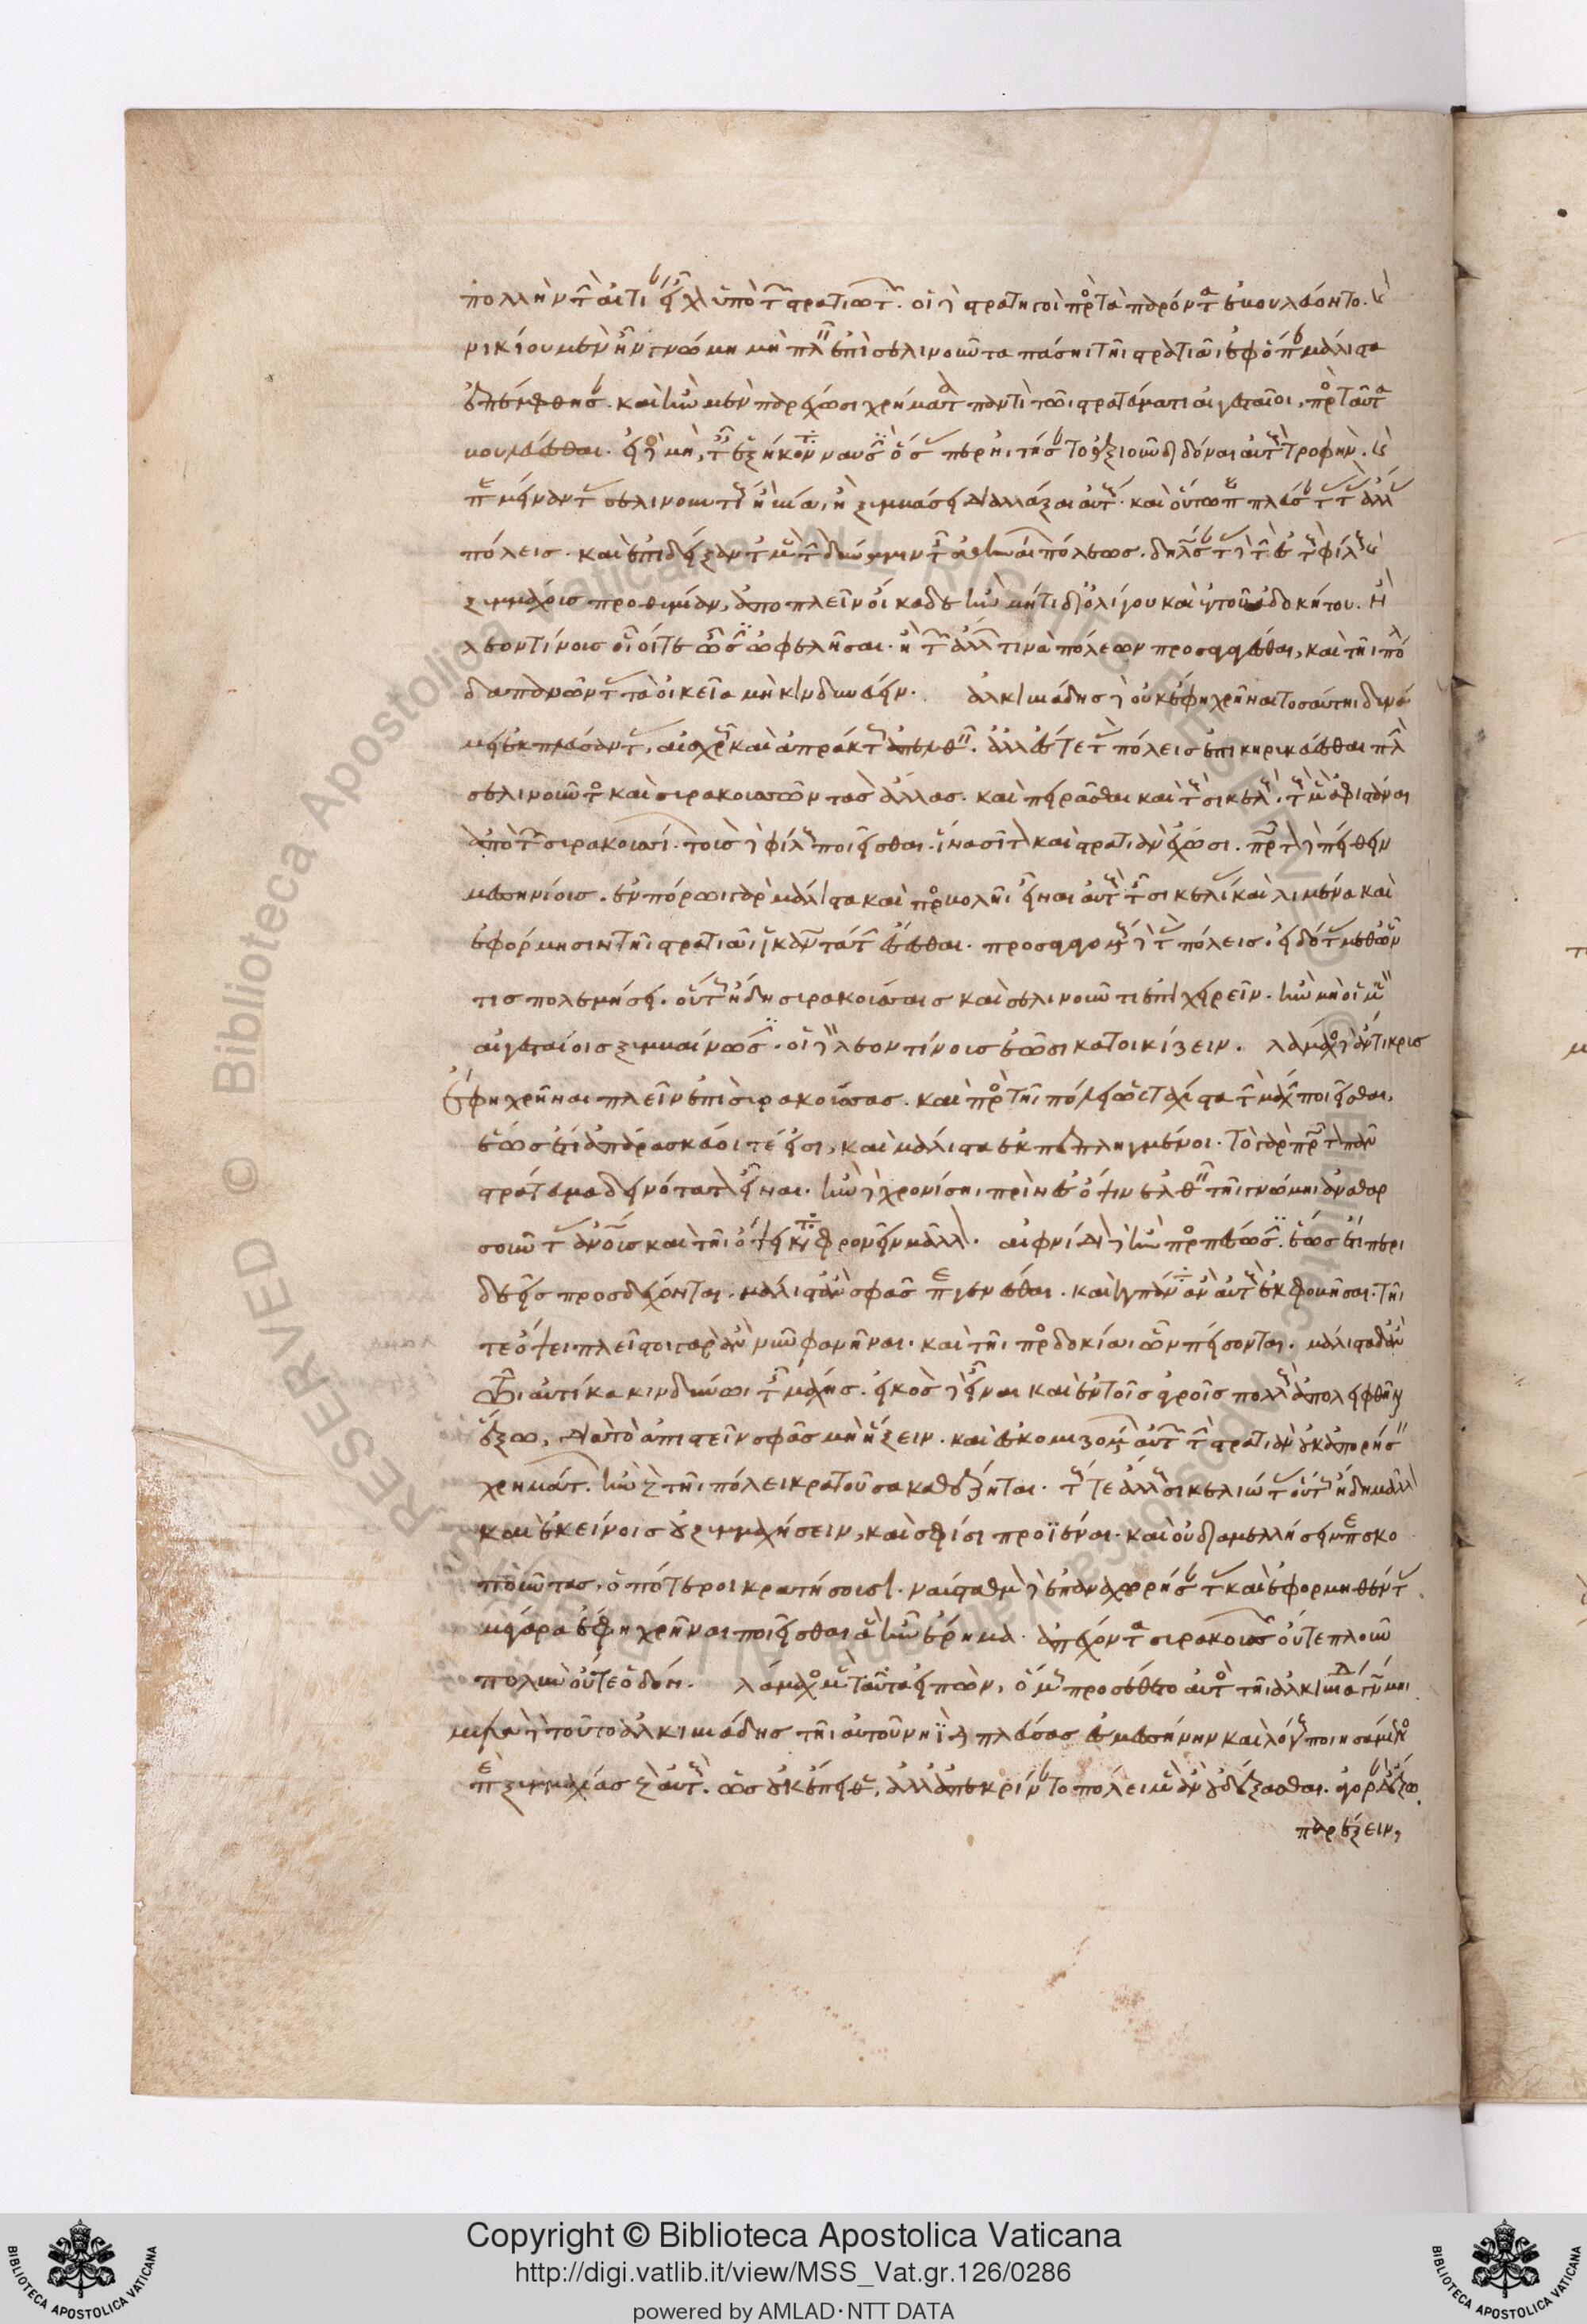 πολλὴν τὴν αἰτίαν εἶχον ὑπὸ τῶν στρατιωτῶν. οἱ δὲ στρατηγοὶ πρὸς τὰ παρόντα ἐβουλεύοντο. καὶ
νικίου μὲν ἦν γνώμη μὴ πλεῖν ἐπὶ σελινοῦντα πάσηι τῆι στρατιᾶι ἐφ' ὅπερ μάλιστα
ἐπέμφθησαν. καὶ ἢν μὲν παρέχωσι χρήματα παντὶ τῶι στρατεύματι αἰγεσταῖοι, πρὸς ταῦτα
βουλεύεσθαι. εἰ δὲ μὴ, ταῖς ἑξήκοντα ναυσὶν ὅσας περ ἠιτήσαντο ἀξιοῦν διδόναι αὐτοὺς τροφὴν. καὶ
παραμείναντας σελινουντίους ἢ βία, ἢ ξυμβάσει διαλλάξαι αὐτοῖς. καὶ οὕτω παραπλεύσαντας τὰς ἄλλας
πόλεις. καὶ ἐπιδείξαντας μὲν τὴν δύναμιν τῆς ἀθηναίων πόλεως. δηλώσαντας δὲ τὴν ἐς τοὺς φίλους καὶ
ξυμμάχους προθυμίαν, ἀποπλεῖν οἴκαδε ἢν μή τι δι' ὀλίγου καὶ ἀπὸ τοῦ ἀδοκήτου. ἢ
λεοντίνοις οἷοί τε ὦσιν ὠφελῆσαι. ἢ τῶν ἄλλων τινὰ πόλεων προσαγαγέσθαι, καὶ τῆι πόλει
δαπανῶντας τὰ οἰκεῖα μὴ κινδυνεύειν. ἀλκιβιάδης δὲ οὐκ ἔφη χρῆναι τοσαύτηι δυνά
μει ἐκπλεύσαντας, αἰσχρῶς καὶ ἀπράκτους ἀπελθεῖν. ἀλλ' ἔς τε τὰς πόλεις ἐπικηρυκεύεσθαι πλὴν
σελινοῦντος καὶ συρακουσῶν τὰς ἄλλας. καὶ πειρᾶσθαι καὶ τοὺς σικελοὺς. τοὺς μὲν ἀφιστάναι
ἀπὸ τῶν συρακουσίων. τοὺς δὲ φίλους ποιεῖσθαι. ἵνα σῖτον καὶ στρατιὰν ἔχωσι. πρῶτον δὲ πείθειν
μεσηνίους. ἐν πόρωι γὰρ μάλιστα καὶ προσβολῆι εἶναι αὐτοὺς τῆς σικελίας καὶ λιμένα καὶ
ἐφόρμησιν τῆι στρατιᾶι ἱκανωτάτην ἔσεσθαι. προσαγαγομένους δὲ τὰς πόλεις. εἰδότας μεθ' ὧν
τις πολεμήσει. οὕτως ἤδη συρακούσαις καὶ σελινοῦντι ἐπιχειρεῖν. ἢν μὴ οἱ μὲν
αἰγεσταίοις ξυμβαίνωσιν. οἱ δὲ λεοντίνους ἐῶσι κατοικίζειν. λάμαχος δὲ ἄντικρυς
ἔφη χρῆναι πλεῖν ἐπὶ συρακούσας. καὶ πρὸς τῆι πόλει ὡς τάχιστα τὴν μάχην ποιεῖσθαι,
ἕως ἔτι ἀπαράσκευοί τέ εἰσι, καὶ μάλιστα ἐκπεπληγμένοι. τὸ γὰρ πρῶτον πᾶν
στράτευμα δεινότατον εἶναι. ἢν δὲ χρονίσηι πρὶν ἐς ὄψιν ἐλθεῖν τῆι γνώμηι ἀναθαρ
σοῦντας ἀνθρώπους καὶ τῆι ὄψει καταφρονεῖν μᾶλλον. αἰφνίδιοι δὲ ἢν προσπέσωσιν. ἕως ἔτι περι
δεεῖς προσδέχονται. μάλιστ' ἂν σφᾶς περιγενέσθαι. καὶ κατὰ πάντα ἂν αὐτοὺς ἐκφοβῆσαι. τῆι
τε ὄψει πλεῖστοι γὰρ ἂν νῦν φανῆναι. καὶ τῆι προσδοκίαι ὧν πείσονται. μάλιστα δ' ἂν
τῶι αὐτίκα κινδύνωι τῆς μάχης. εἰκὸς δὲ εἶναι καὶ ἐν τοῖς ἀγροῖς πολλοὺς ἀποληφθῆναι
ἔξω, διὰ τὸ ἀπιστεῖν σφᾶς μὴ ἥξειν. καὶ ἐσκομιζομένων αὐτῶν τὴν στρατιὰν οὐκ ἀπορήσειν
χρημάτων. ἢν πρὸς τῆι πόλει κρατοῦσα καθέζηται. τούς τε ἄλλους σικελιώτας οὕτως ἤδη μᾶλλον
καὶ ἐκείνοις οὐ ξυμμαχήσειν, καὶ σφίσι προϊέναι. καὶ οὐ διαμελλήσειν περισκο
ποῦντας, ὁπότεροι κρατήσουσι. ναύσταθμον δὲ ἐπαναχωρήσαντας καὶ ἐφορμηθέντας
μέγαρα ἔφη χρῆναι ποιεῖσθαι ἃ ἦν ἐρῆμα. ἀπέχοντα συρακουσῶν οὔτε πλοῦν
πολὺν οὔτε ὁδόν. λάμαχος μὲν ταῦτα εἰπὼν, ὅμως προσέθετο αὐτὸς τῆι ἀλκιβιάδου γνώμηι
μετὰ δὲ τοῦτο ἀλκιβιάδης τῆι αὐτοῦ νηῒ διαπλεύσας ἐς μεσήνην καὶ λόγους ποιησάμενος
περὶ ξυμμαχίας πρὸς αὐτοὺς. ὡς οὐκ ἔπειθεν, ἀλλ' ἀπεκρίναντο πόλει μὲν ἂν οὐ δέξασθαι. ἀγορὰν δ' ἔξω
παρέξειν,
Copyright © Biblioteca Apostolica Vaticana
http://digi.vatlib.it/view/MSS_Vat.gr.126/0286
powered by AMLAD·NTT DATA